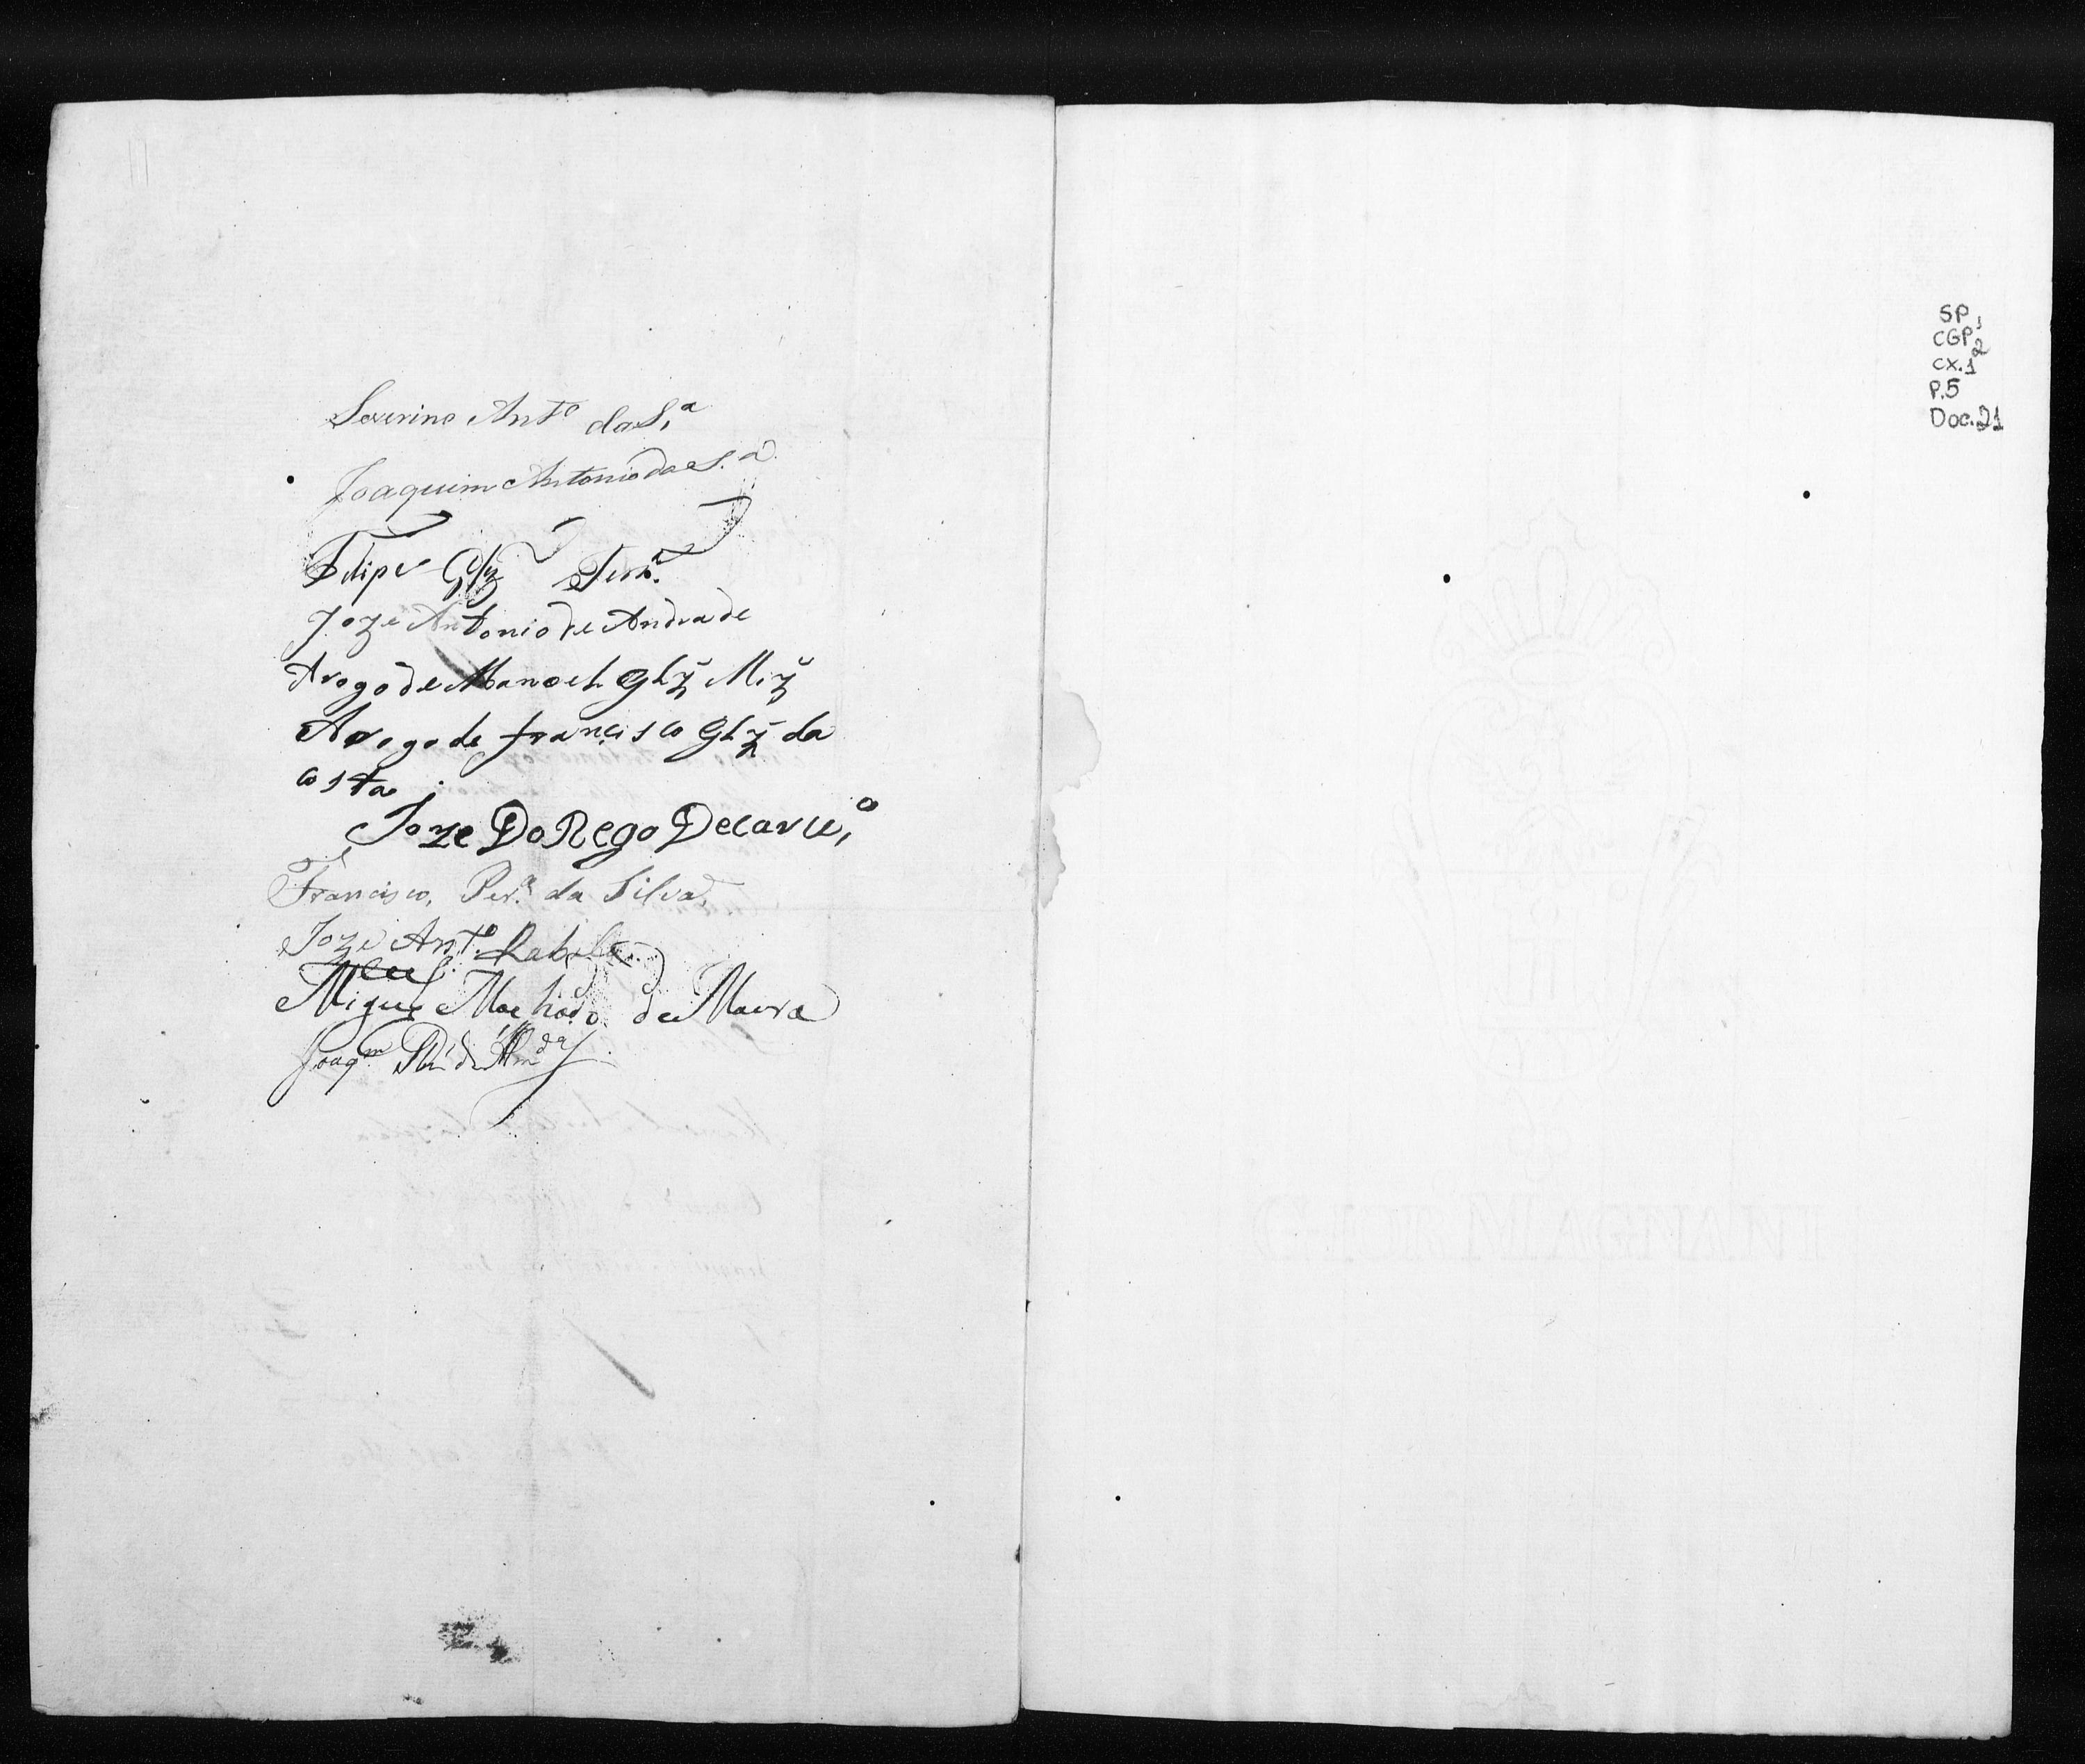 Severino Antº da S.ª
Joaquim Antonio da S.ª
Felipe Glz Ferr.ª
Joze Antonio de Andrade
Arogo de Manoel Glz Miz
Arogo de francisco Glz da
costa
Joze Do Rego De carv.º
Francisco Per.ª da Silva
Joze Ant.º Rabelo
Miguel Machado de Moura
Joaq.m
SP,
CGP,
cx. 1
2
P.5
Doc. 21
GIOR MAGNANI